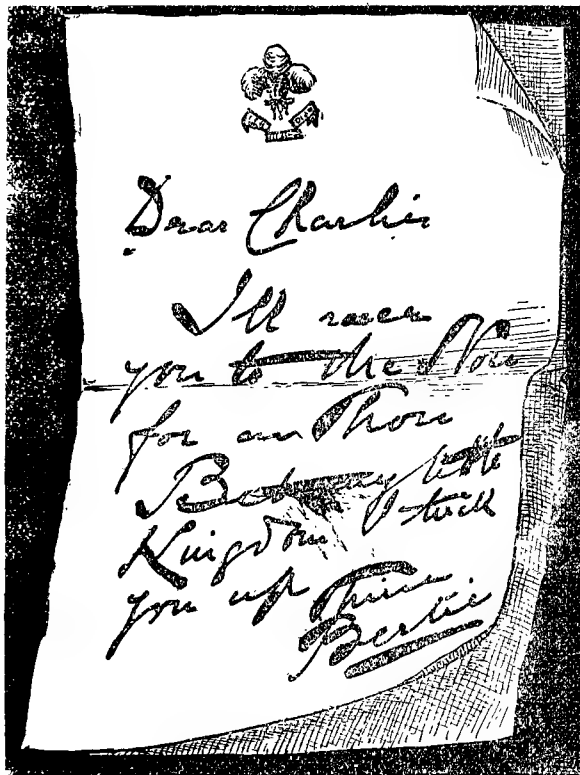 Dear Charlie
I'll race
you to the Nore
for a Thou
Bet my little
Kingdom I stick
you up Thine
Bertie